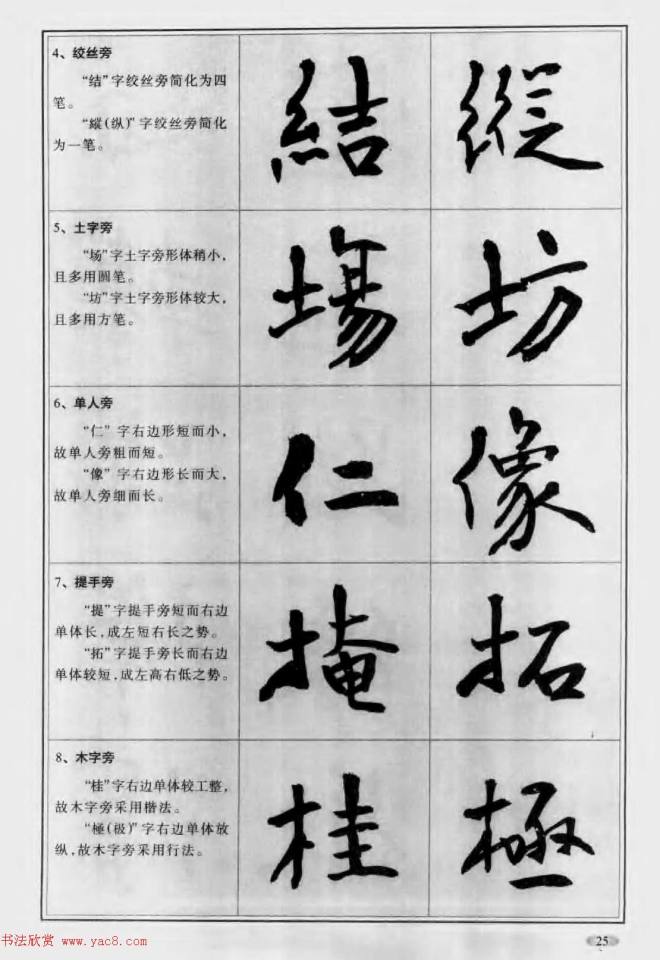 4、绞丝旁
“结”字绞丝旁简化为四
笔。
“縱(纵)”字绞丝旁简化
为一笔。
結 縱
5、土字旁
“场”字土字旁形体稍小，
且多用圆笔。
“坊”字土字旁形体较大，
且多用方笔。
場 坊
6、单人旁
“仁”字右边形短而小，
故单人旁粗而短。
“像”字右边形长而大，
故单人旁细而长。
仁 像
7、提手旁
“提”字提手旁短而右边
单体长，成左短右长之势。
“拓”字提手旁长而右边
单体较短，成左高右低之势。
掩 拓
8、木字旁
“桂”字右边单体较工整，
故木字旁采用楷法。
“極(极)”字右边单体放
纵，故木字旁采用行法。
桂 極
书法欣赏 www.yac8.com
25